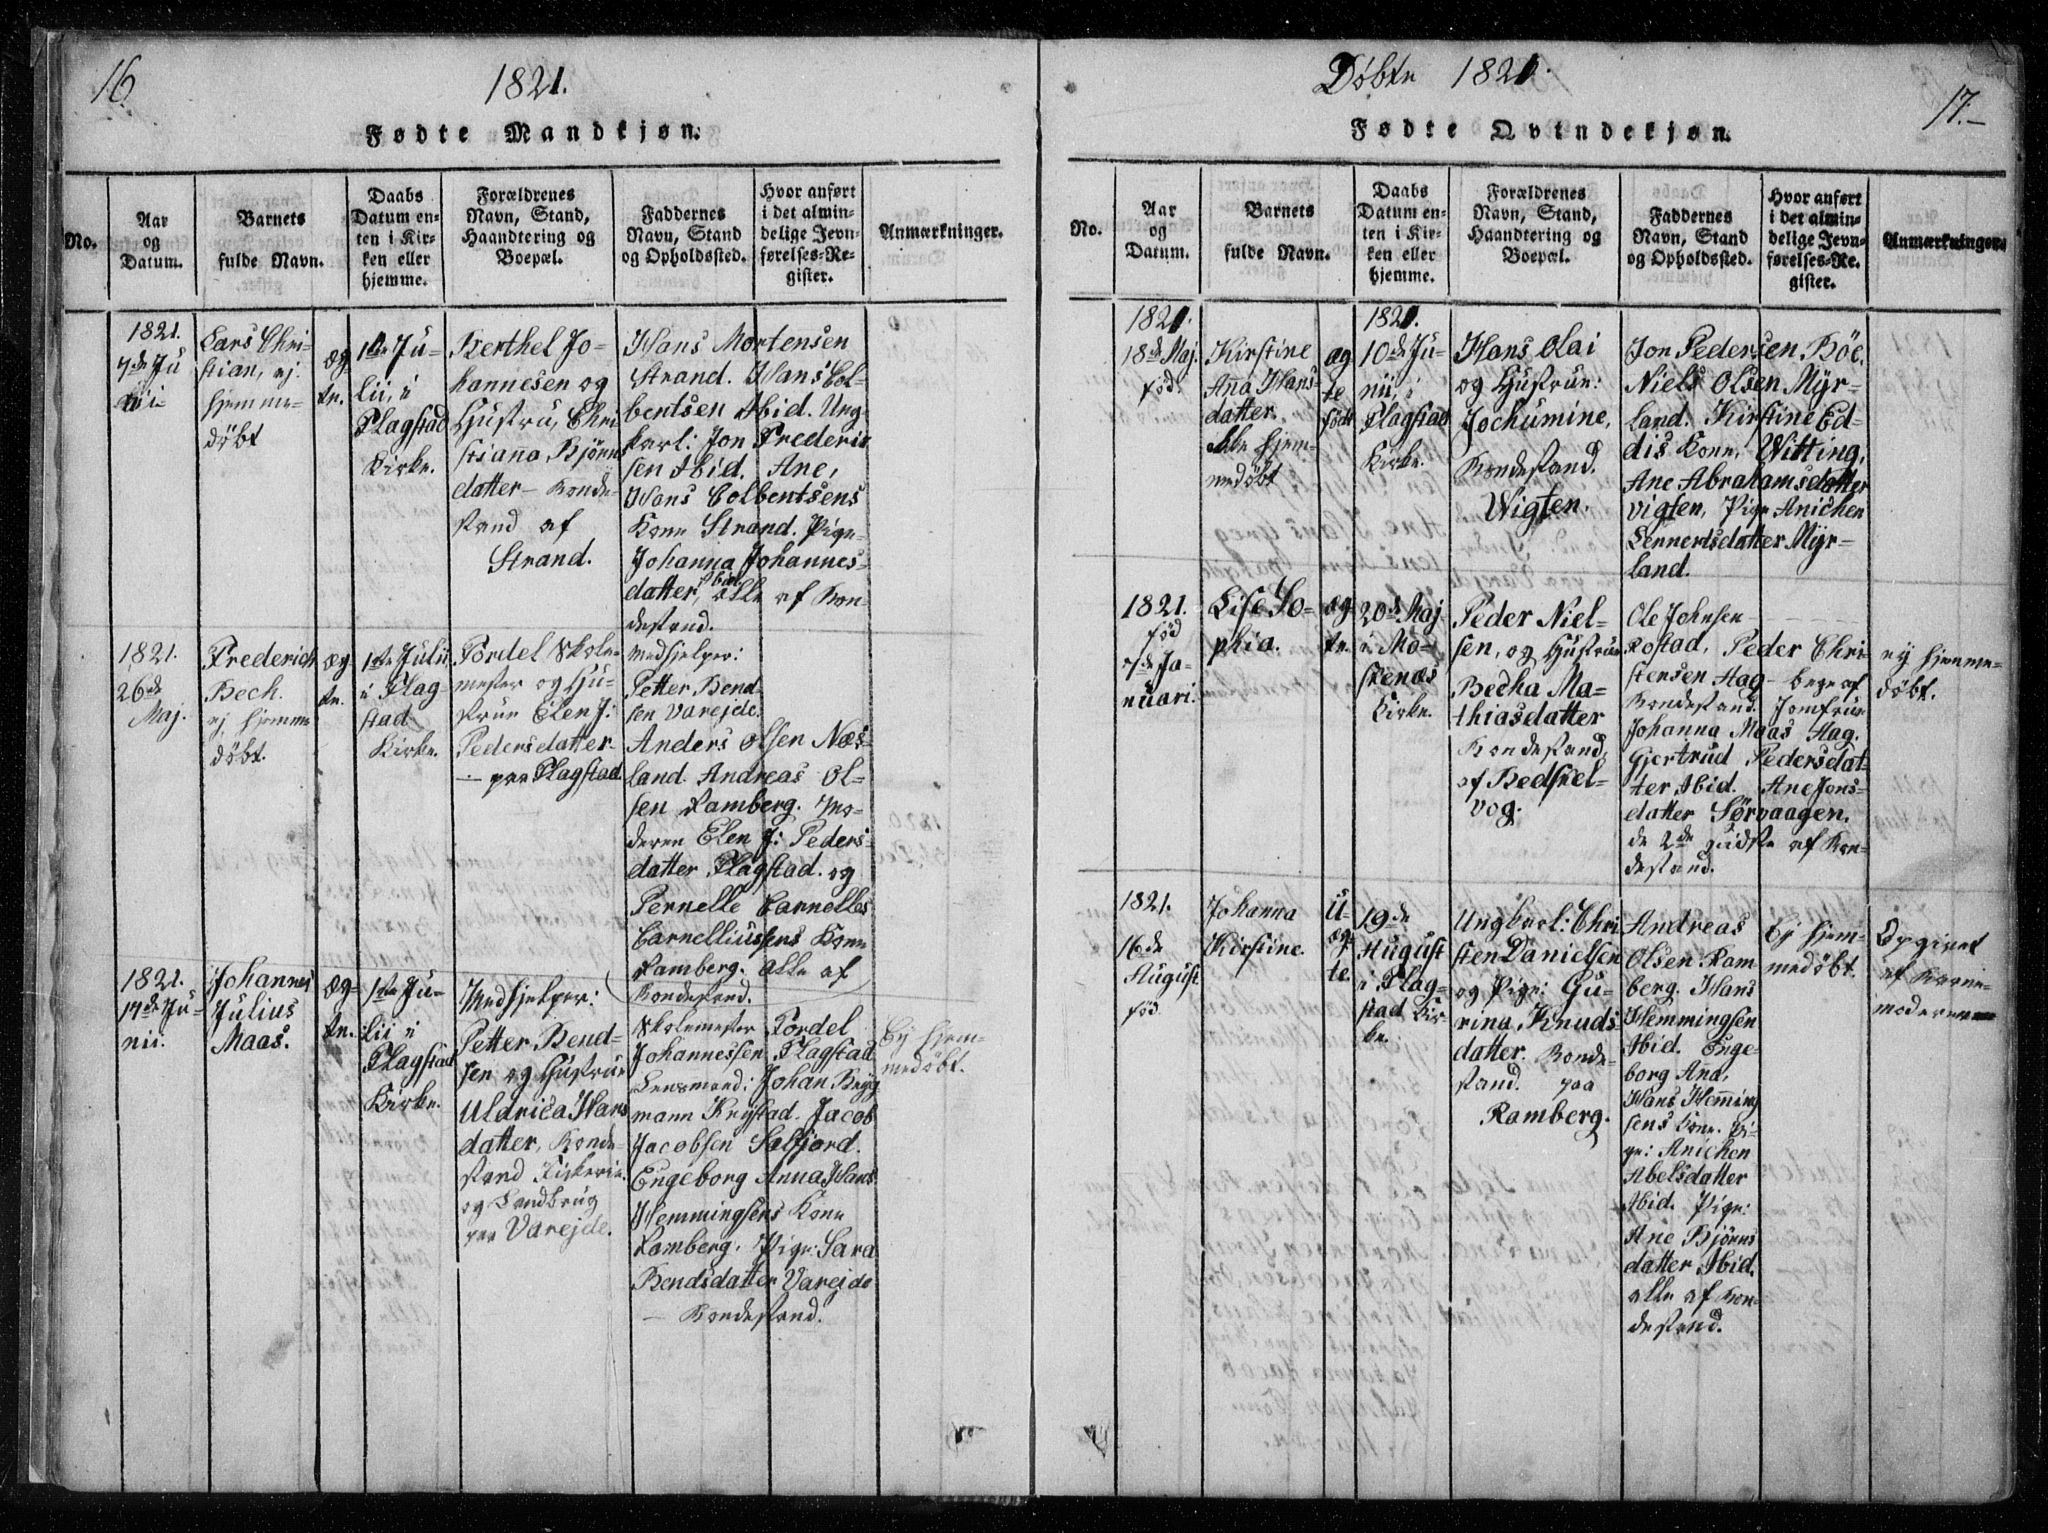 16.
1821.
Fødte Mandkjøn.
No.
Aar
og
Datum.
Barnets
fulde Navn.
Daabs
Datum en-
ten i Kir-
ken eller
hjemme.
Forældrenes
Navn, Stand,
Haandtering og
Boepæl.
Faddernes
Navn, Stand
og Opholdssted.
Hvor anført
i det almin-
delige Jevn-
førelses-Re-
gister.
Anmærkninger.
1821.
7de Ju
nii
Lars Chri-
stian, ej.
hjemme-
døbt
æg
te.
1ste Ju-
lii, i
Flagstad
Kirke.
Berthel Jo-
hannesen og
Hustru, Chri
stianna Bjørn
datter- Bonde-
stand af
Strand.
Hans Mortensen
Strand. Hans Col-
bentsen Ibid. Ung-
karl: Jon Frederik
sen Ibid. Ane,
Hans Colbentsens
Kone Strand. Pige-
Johanna Johannes-
datter, Ibid alle af Bon-
destand.
1821.
26de
Maj.
Frederich
Bech.
ej hjemme
døbt.
æg
te.
1ste Julii
i Flag-
stad
Kirke.
Tordel Skole-
mester og Hu-
strue Elen J:
Pedersdatter-
- paa Flagstad.
Medhjelper:
Petter Bend-
sen Varejde.
Anders Olsen Næs-
land. Andreas Ol-
sen Ramberg. Mo-
deren Elen J: Peders-
datter Flagstad. og
Pernelle Carnelles
Carnelliussens Kone
Ramberg. Alle af
Bondestand.
1821.
14de Ju-
nii.
Johannes
Julius
Maas.
æg-
te.
1ste Ju-
lii i
Flagstad
Kirke.
Medhjelper:
Petter Bend-
sen og Hustrue
Uldrica Hans
datter, Bonde-
stand Fiskerie
og Landbrug
paa Varejde.
Skolemester Tordel
Johannessen Flagstad
Lensmand: Johan Bryg
mann Krystad. Jacob
Jacobsen Selfjord.
Engeborg Anna Hans
Hemmingsens Kone
Ramberg. Pige: Sara
Bendsdatter Varejde
- Bondestand.
Ej hjem-
medøbt.
Døbte 1821.
17.-
Fødte Qvindekjøn.
No.
Aar
og
Datum.
Barnets
fulde Navn.
Daabs
Datum en-
ten i Kir-
ken eller
hjemme.
Forældrenes
Navn, Stand,
Haandtering og
Boepæl.
Faddernes
Navn, Stand
og Opholdssted.
Hvor anført
i det almin-
delige Jevn-
førelses-Re-
gister.
Anmærkninger.
1821.
18de Maj.
fød.
Kirstine
Ana Hans-
datter.
hjem-
medøbt
æg
te
født
1821.
10de Ju-
nii, i
Flagstad
Kirke.
Hans Olai
og Hustrue:
Jochumine,
Bondestand.
Wigten.
Jon Pedersen Böe.
Niels Olsen Myr-
land. Kirstine Ed-
dis Kone, Witting,
Ane Abrahamsdatter
vigten, Pige Anichen
Lennertsdatter Myr-
land.
1821.
fød
7de Ja-
nuari.
Lise So-
phia.
æg-
te.
20de Maj
i Mo-
skenæs
Kirke.
Peder Niel-
sen, og Hustrue
Becha Ma-
thiasdatter
Bondestand,
af Bedhel-
vog.
Ole Johnsen
Rostad, Peder Chri-
stensen Aag- bege af
Bondestand. Jomfrue
Johanna Maas Aag.
Gjertrud Pedersdat-
ter Ibid. Ane Jons-
datter Sørvaagen.
de 2de sidste af Bon-
destand.
ej hjemme-
døbt.
1821.
16de
August
fød.
Johanna
Kirstine.
U-
æg-
te.
19de
August
i Flag-
stad Kir-
ke.
Ungkarl: Chri
sten Danielsen
og Pige: Gu-
rina Knuds-
datter. Bonde-
stand. paa
Ramberg.
Andreas
Olsen Ram
berg. Hans
Hemmingsen
Ibid. Enge-
borg Ana,
Hans Heming
sens Kone. Pi-
ge: Anichen
Abelsdatter
Ibid. Pige:
Ane Bjørns
datter Ibid.
alle af Bon-
destand.
Ej hjem-
medøbt.
Opgivet
af Barne-
moderen